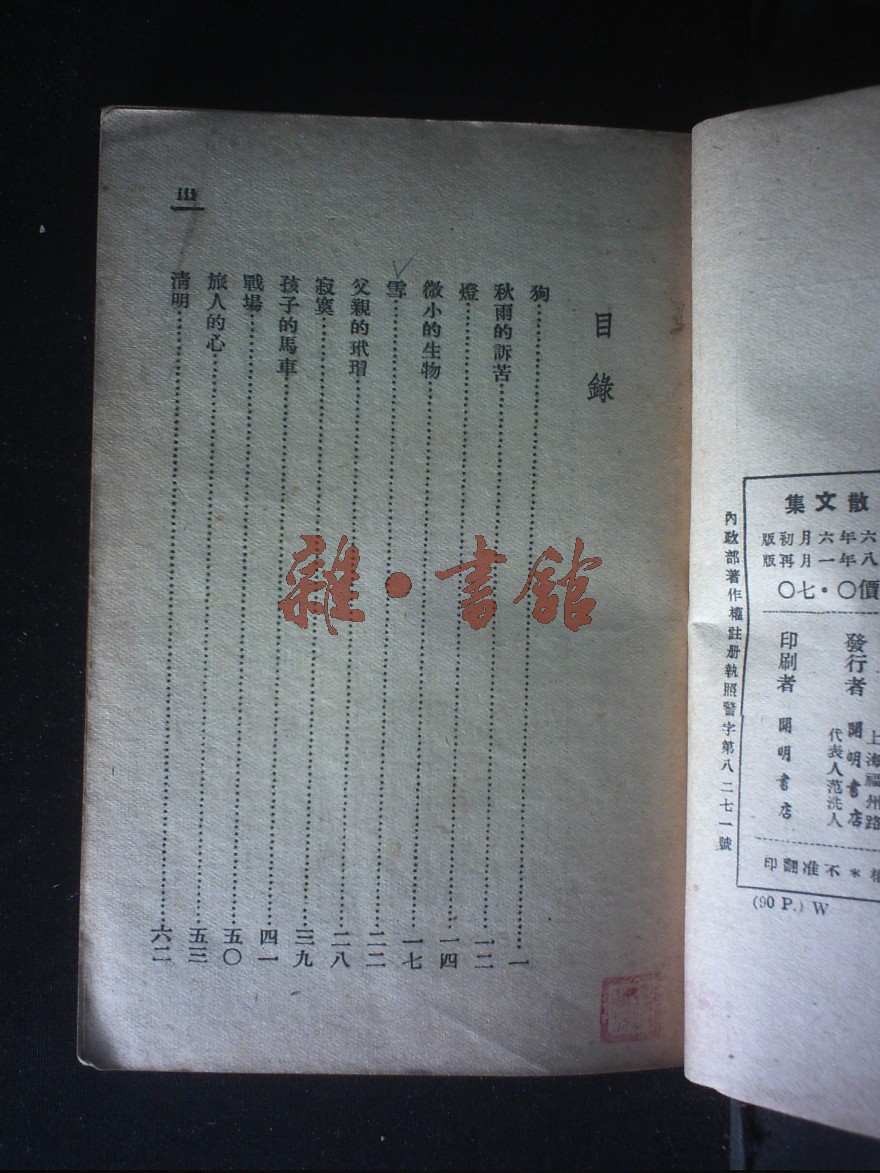 目錄
狗 一
秋雨的訴苦 一二
燈 一四
微小的生物 一七
雪 二二
父親的玳瑁 二八
寂寞 三九
孩子的馬車 四一
戰場 五〇
旅人的心 五三
清明 六二
iii
雜·書館
集文散
版初月六年六
版再月一年八
〇七·〇價
發行者 開明書店
代表人范洗人
上海福州路
印刷者 開明書店
印翻准不*權
內政部著作權註册執照警字第八二七一號
(90 P.) W